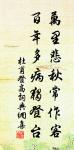 萬里悲秋常作客
百年多病獨登台
杜甫登高詞